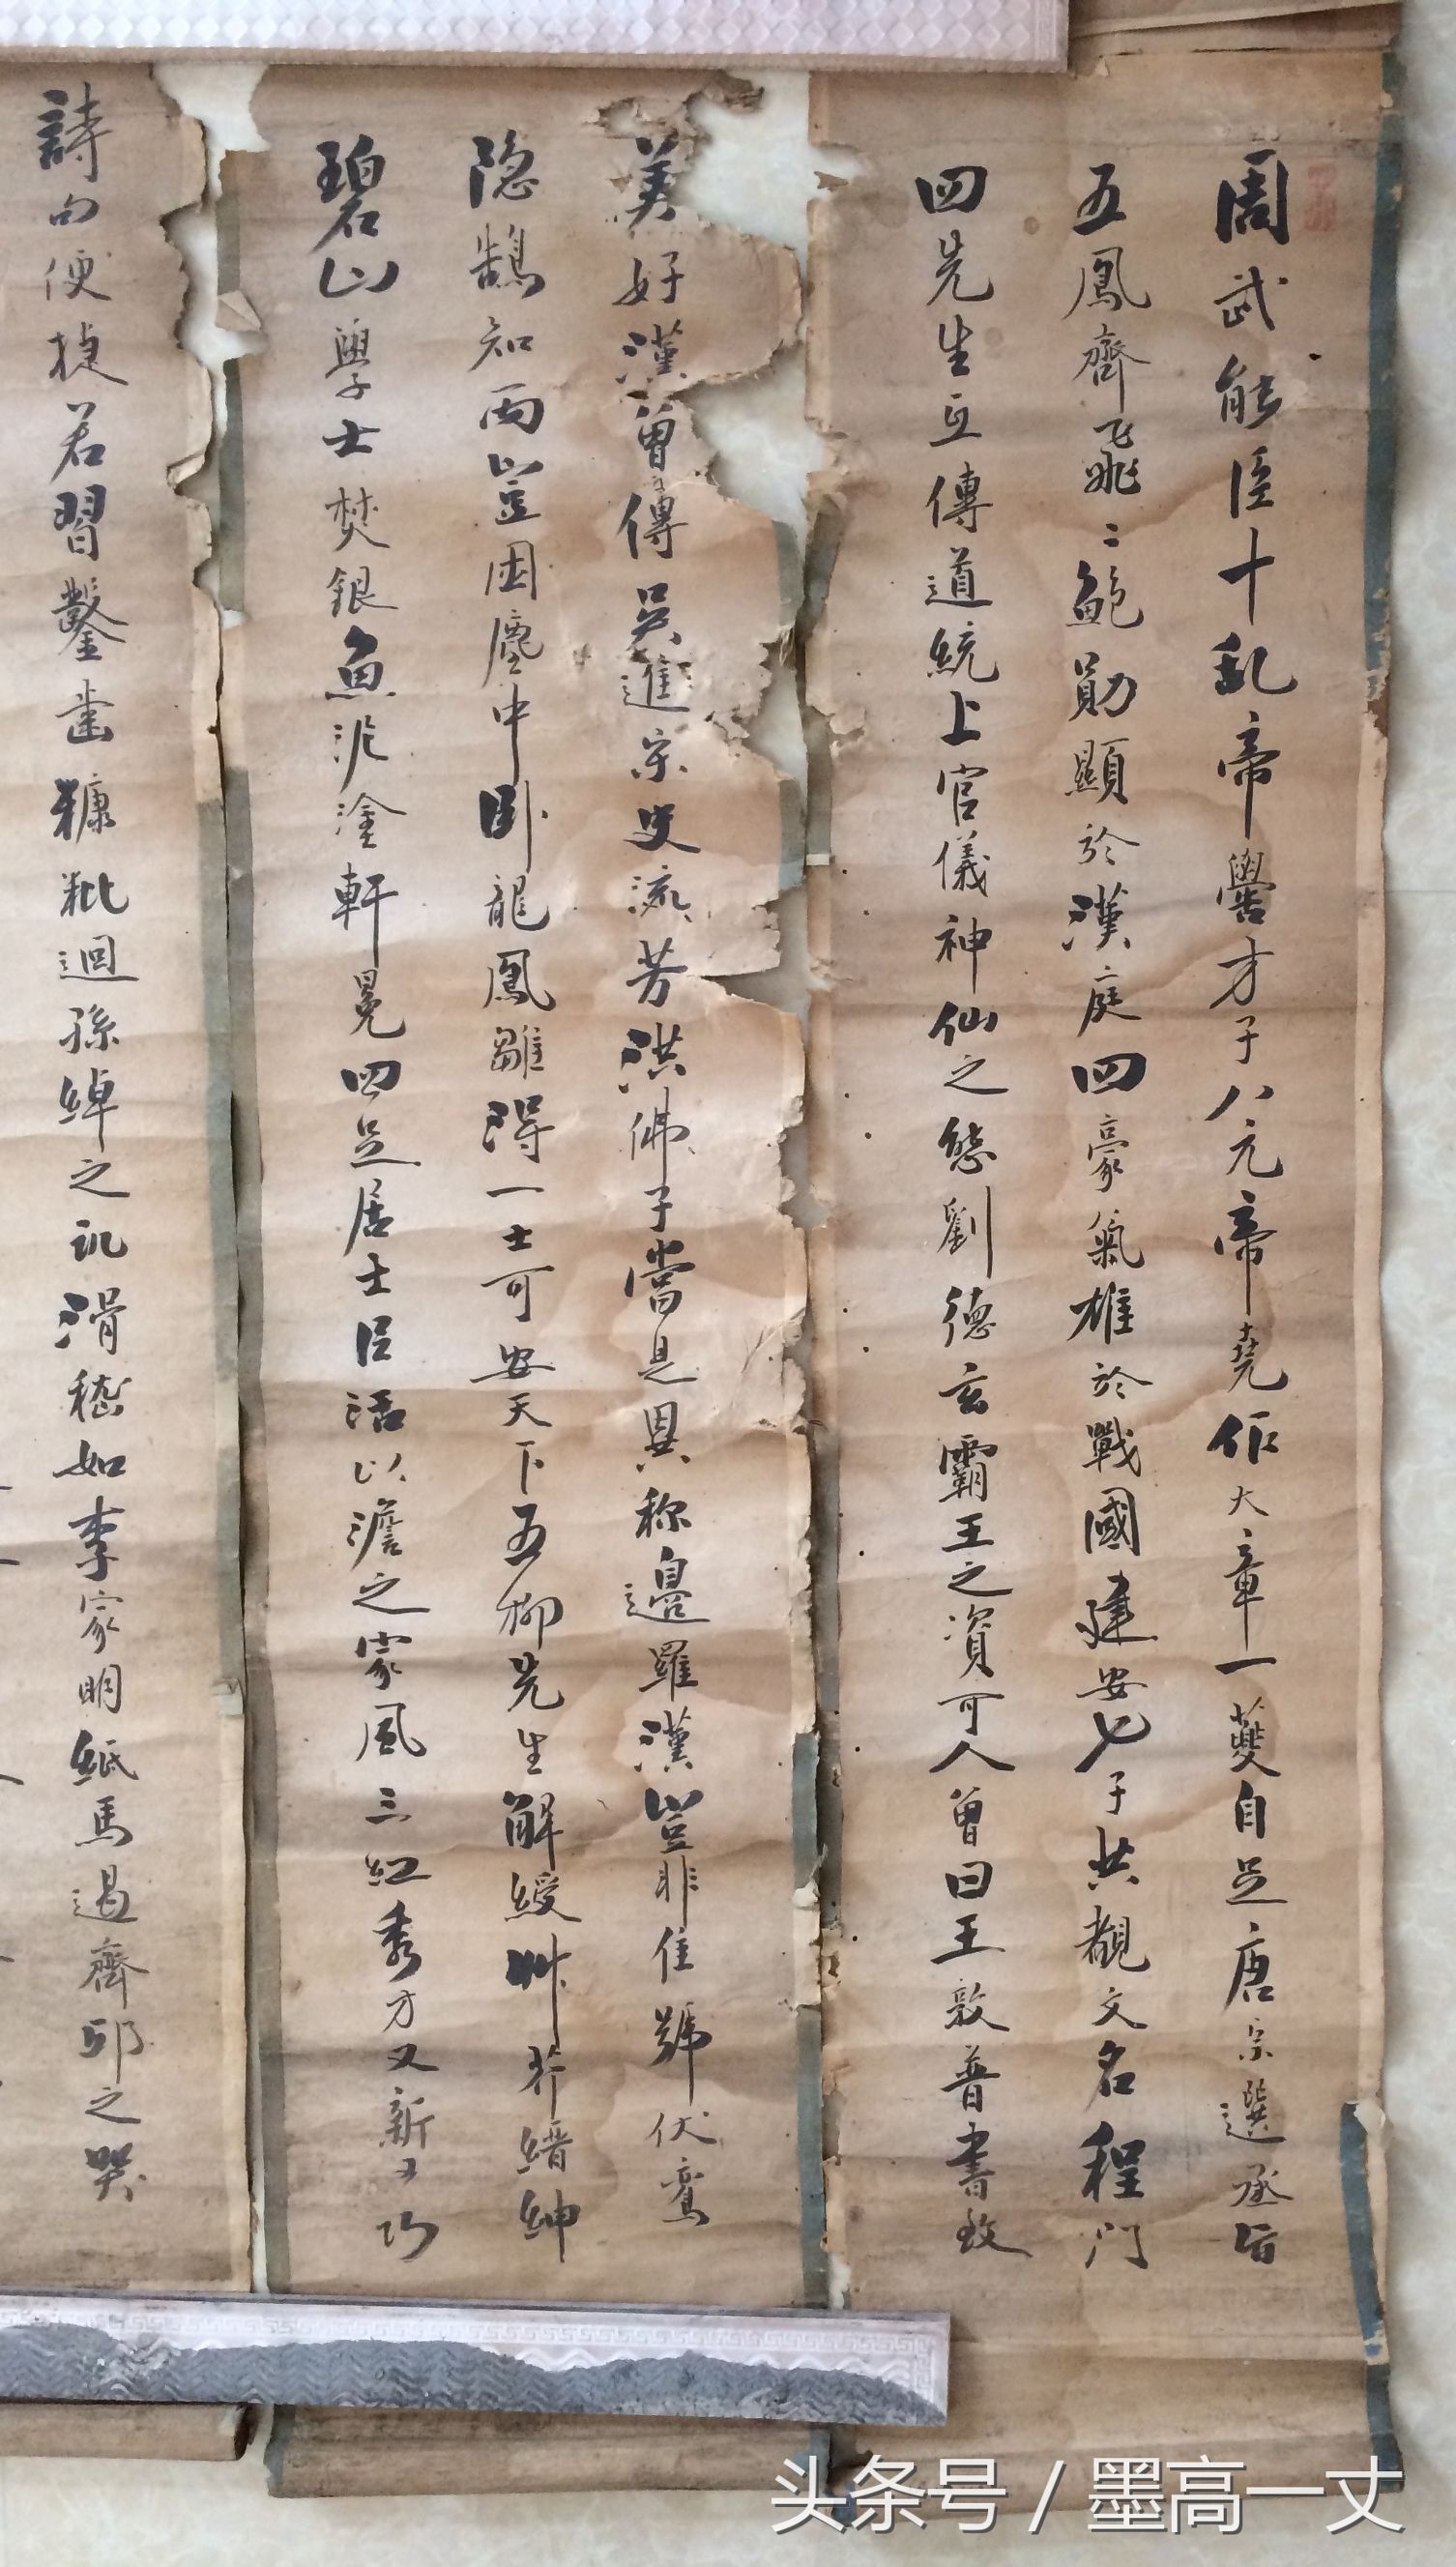 周武能臣十乱帝嚳才子八元帝堯作大章一夔自足唐宗選丞旨
五鳳齊飛二鮑勛顯於漢庭四豪氣雄於戰國建安七子共觀文名程門
四先生互傳道統上官儀神仙之態劉德玄霸王之資可人曾曰王敦普書致
美好漢曾傳吳進宋史流芳洪佛子當是異称邊羅漢豈非佳號伏鸞
隐鵠知两豈困塵中卧龍鳳雛得一士可安天下五柳先生解綬艸芥縉紳
碧山學士焚銀魚泥塗軒冕四足居士臣活以澹之家風三紅秀才又新又巧
詩句便捷若習鑿齒糠粃迴孫綽之訊滑稽如李家明紙馬過齊邱之哭
头条号 / 墨高一丈